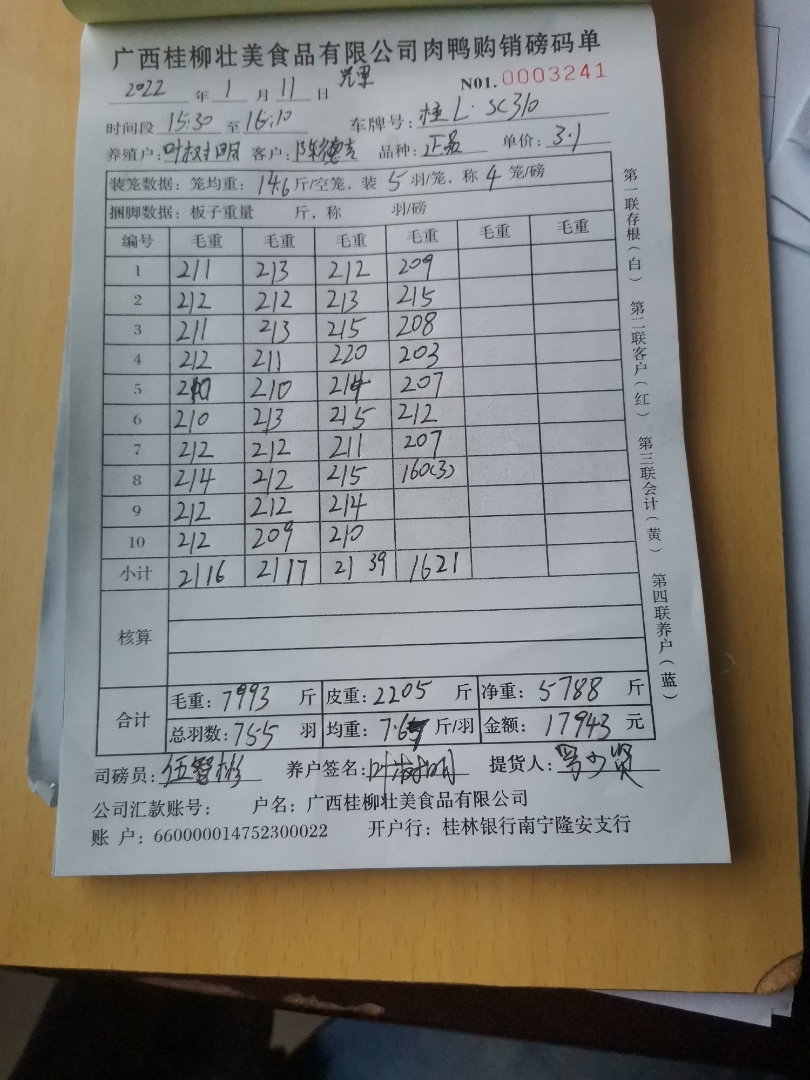 广西桂柳壮美食品有限公司肉鸭购销磅码单
2022 年 1 月 11 日 N01. 0003241
时间段 15:30 至 16:10 车牌号: 桂L·SC310
养殖户: 叶树明 客户: 陈德 品种: 正品 单价: 3.1
装笼数据: 笼均重: 14.6 斤/空笼, 装 5 羽/笼, 称 4 笼/磅
捆脚数据: 板子重量 斤, 称 羽/磅
编号 毛重 毛重 毛重 毛重 毛重 毛重
1 211 213 212 209
2 212 212 213 215
3 211 213 215 208
4 212 211 220 203
5 210 210 214 207
6 210 213 215 212
7 212 212 211 207
8 214 212 215 160(3)
9 212 212 214
10 212 209 210
小计 2116 2117 2139 1621
核算
合计 毛重: 7993 斤 皮重: 2205 斤 净重: 5788 斤
总羽数: 755 羽 均重: 7.67 斤/羽 金额: 17943 元
司磅员: 伍智彬 养户签名: 叶树明 提货人:
公司汇款账号: 户名: 广西桂柳壮美食品有限公司
账 户: 660000014752300022 开户行: 桂林银行南宁隆安支行
第一联存根(白) 第二联客户(红) 第三联会计(黄) 第四联养户(蓝)